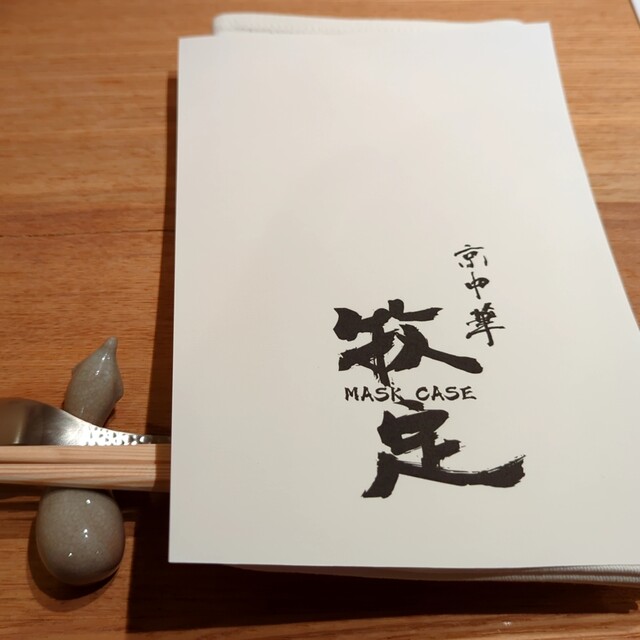 京中華
牧
MASK CASE
定